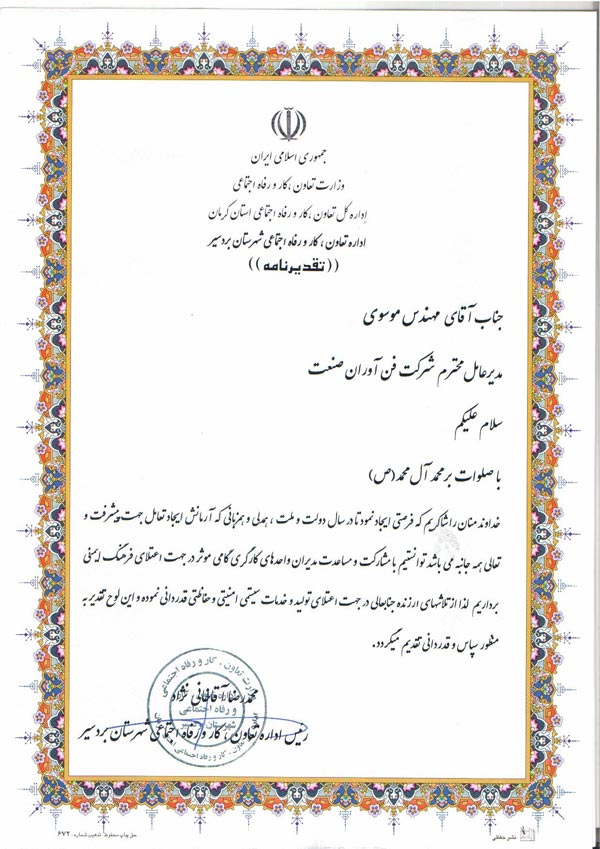 جمهوری اسلامی ایران
وزارت تعاون ، کار و رفاه اجتماعی
اداره کل تعاون ، کار و رفاه اجتماعی استان کرمان
اداره تعاون ، کار و رفاه اجتماعی شهرستان بردسیر
((تقدیرنامه))
جناب آقای مهندس موسوی
مدیرعامل محترم شرکت فن آوران صنعت
سلام علیکم
با صلوات بر محمد آل محمد (ص)
خداوند منان را شاکریم که فرصتی ایجاد نمود تا در سال دولت و ملت ، همدلی و همزبانی که آرمانش ایجاد تعامل جهت پیشرفت و
تعالی همه جانبه می باشد توانستیم با مشارکت و مساعدت مدیران واحدهای کارگری گامی موثر در جهت اعتلای فرهنگ ایمنی
برداریم لذا از تلاشهای ارزنده جنابعالی در جهت اعتلای تولید و خدمات سیستمی امنیتی و حفاظتی قدردانی نموده و این لوح تقدیر به
منظور سپاس و قدردانی تقدیم میگردد.
محمدرضا آقاخانی نژاد
رئیس اداره تعاون ، کار و رفاه اجتماعی شهرستان بردسیر
وزارت تعاون ، کار و رفاه اجتماعی
و رفاه اجتماعی
نشر حفظی
حق چاپ محفوظ تذهیب شماره: ۶۷۲